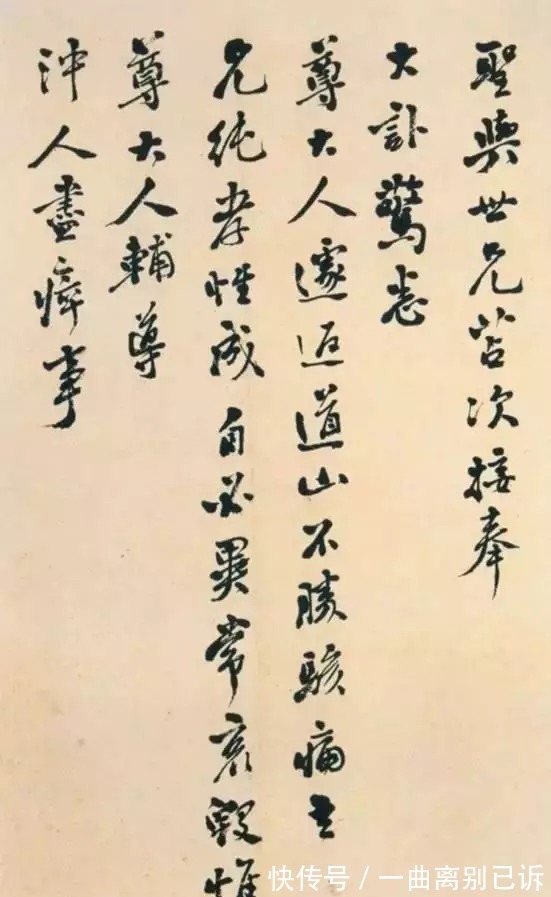 聖與世兄苫次接奉
大訃驚悉
尊大人遽返道山不勝駭痛
兄純孝性成自必異常哀毀惟
尊大人輔導
沖人盡瘁事
快传号/一曲离别已诉